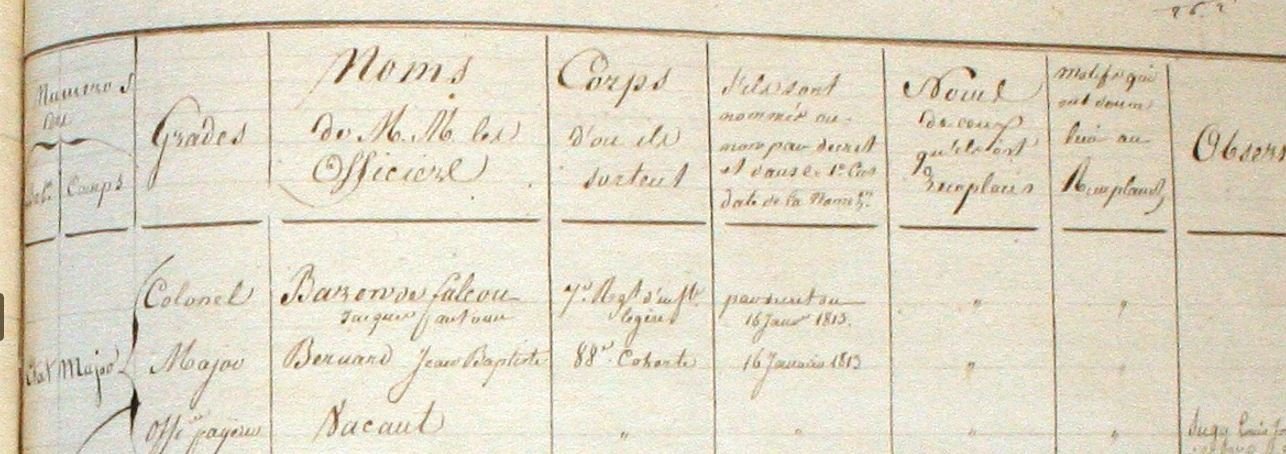 Numeros
des
Bat.ns
Comps
Grades
Noms
de M.M. les
Officiers
Corps
d'où ils
sortent
S'ils sont
nommés ou
non par décret
et dans ce 1.er Cas
date de la Nom.on
Noms
de ceux
qu'ils ont
Remplacés
Motifs qui
ont donné
lieu au
Remplacem.t
Observ
Etat Major
Colonel
Baron de Falcon
Jacques Antoine
7.e Reg.t d'inf.ie
légère
par décret du
16 Janv.er 1813.
"
"
Major
Bernard Jean Baptiste
88.e Cohorte
16 Janvier 1813
"
"
Off.er payeur
Vacant
"
"
"
"
Louis